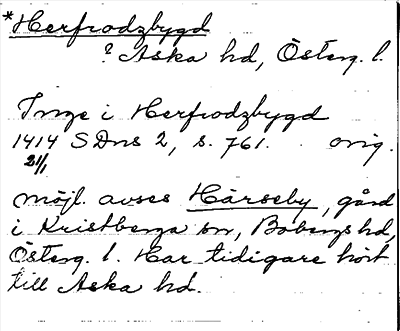 *Herfrodzbygd
? Aska hd, Österg. l.
Inge i Herfrodzbygd
1414 SDns 2, s. 761. orig.
21/1
Möjl. avses Härseby, gård
i Kristberga sn, Bobergs hd,
Österg. l. Har tidigare hört
till Aska hd.